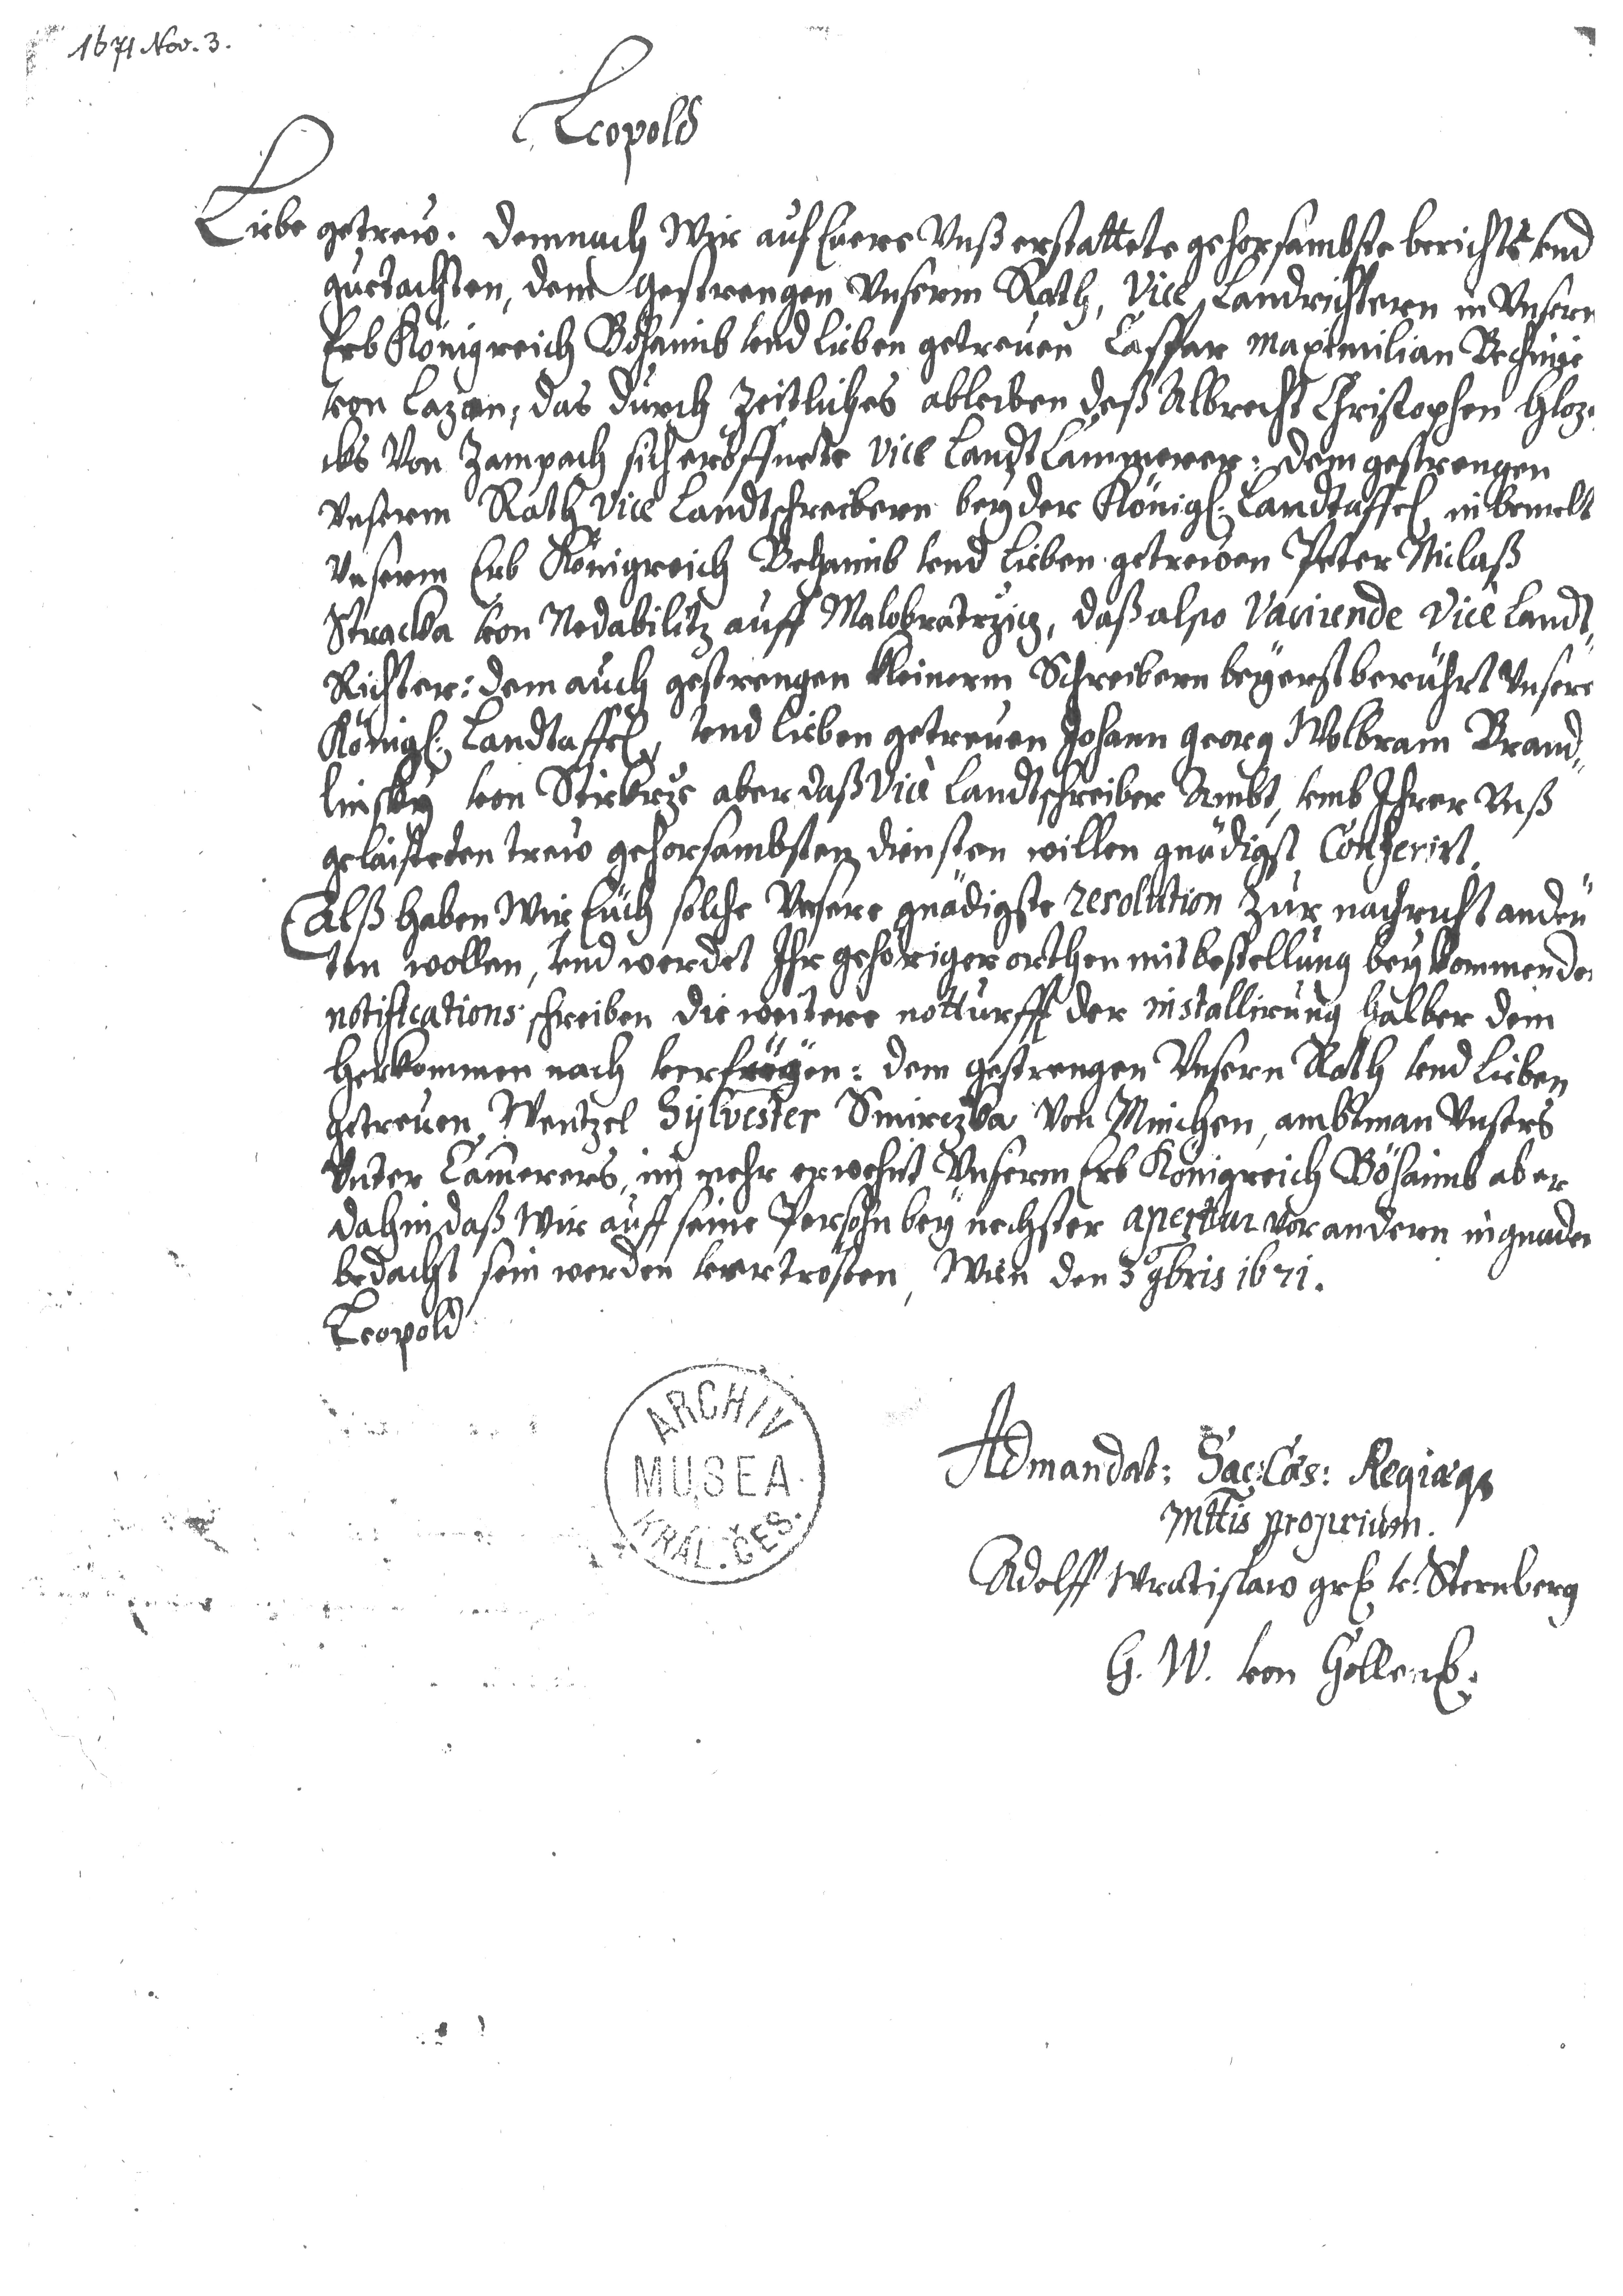 1671 Nov. 3.
Leopold
Liebe getrew. Demnach Wir auf Euere Unß erstattete gehorsambste berichts vnd
guetachten, dem gestrengen Vnserm Rath, Vice Landrichtern in Vnserm
Erb Königreich Böhaimb vnd lieben getreuen Caspar Maximilian Bechinie
von Lazan, das durch zeitliches ableiben deß Albrecht Christophen Hloz-
eks Von Zampach sich eröffnete Vice Landt Cammerer: dem gestrengen
Vnserm Rath Vice Landtschreibern bey der Königl: Landtaffel, in bemelt
Vnserm Erb Königreich Behaimb vnd lieben getrewen Peter Niclaß
Stracka von Nedabilitz auff Malobratrzicz, daß also Vacirende Vice Landt,,
Richter: dem auch gestrengen kleinerm Schreibern bey erst berührt Vnsere
Königl: Landtaffel, vnd lieben getreuen Johann Georg Wolbram Brand,,
linsky von Stiekrze aber daß Vice Landtschreiber Ambt, vmb Ihrer Vnß
gelaisteten trew gehorsambsten diensten willen gnädigst Conferirt.
Alß haben Wir Euch solche Vnsere gnädigste resolution zur nachricht andeü
ten wollen, vnd werdet Ihr gehöriger orthen mit bestellung beykommender
notifications schreiben die weitere notturfft der installirung halber dem
herkommen nach verfüegen: dem gestrengen Vnsern Rath vnd lieben
getreuen Wentzel Sylvester Smirczka Von Mnichen, ambtman Vnsers
Vnter Camerers, in mehr erwehnt Vnserm Erb Königreich Böhaimb aber
dahin daß Wir auff seine Persohn bey nechster apertur vor andern in gnaden
bedacht sein werden vertrösten, Wien den 3 9bris 1671.
Leopold
ARCHIV
MUSEA
KRÁL. ČES.
Ad mandat: Sac: Cæs: Regiæqs
Mttis proprium.
Adolff Wratislaw grf v. Sternberg
G. W. von